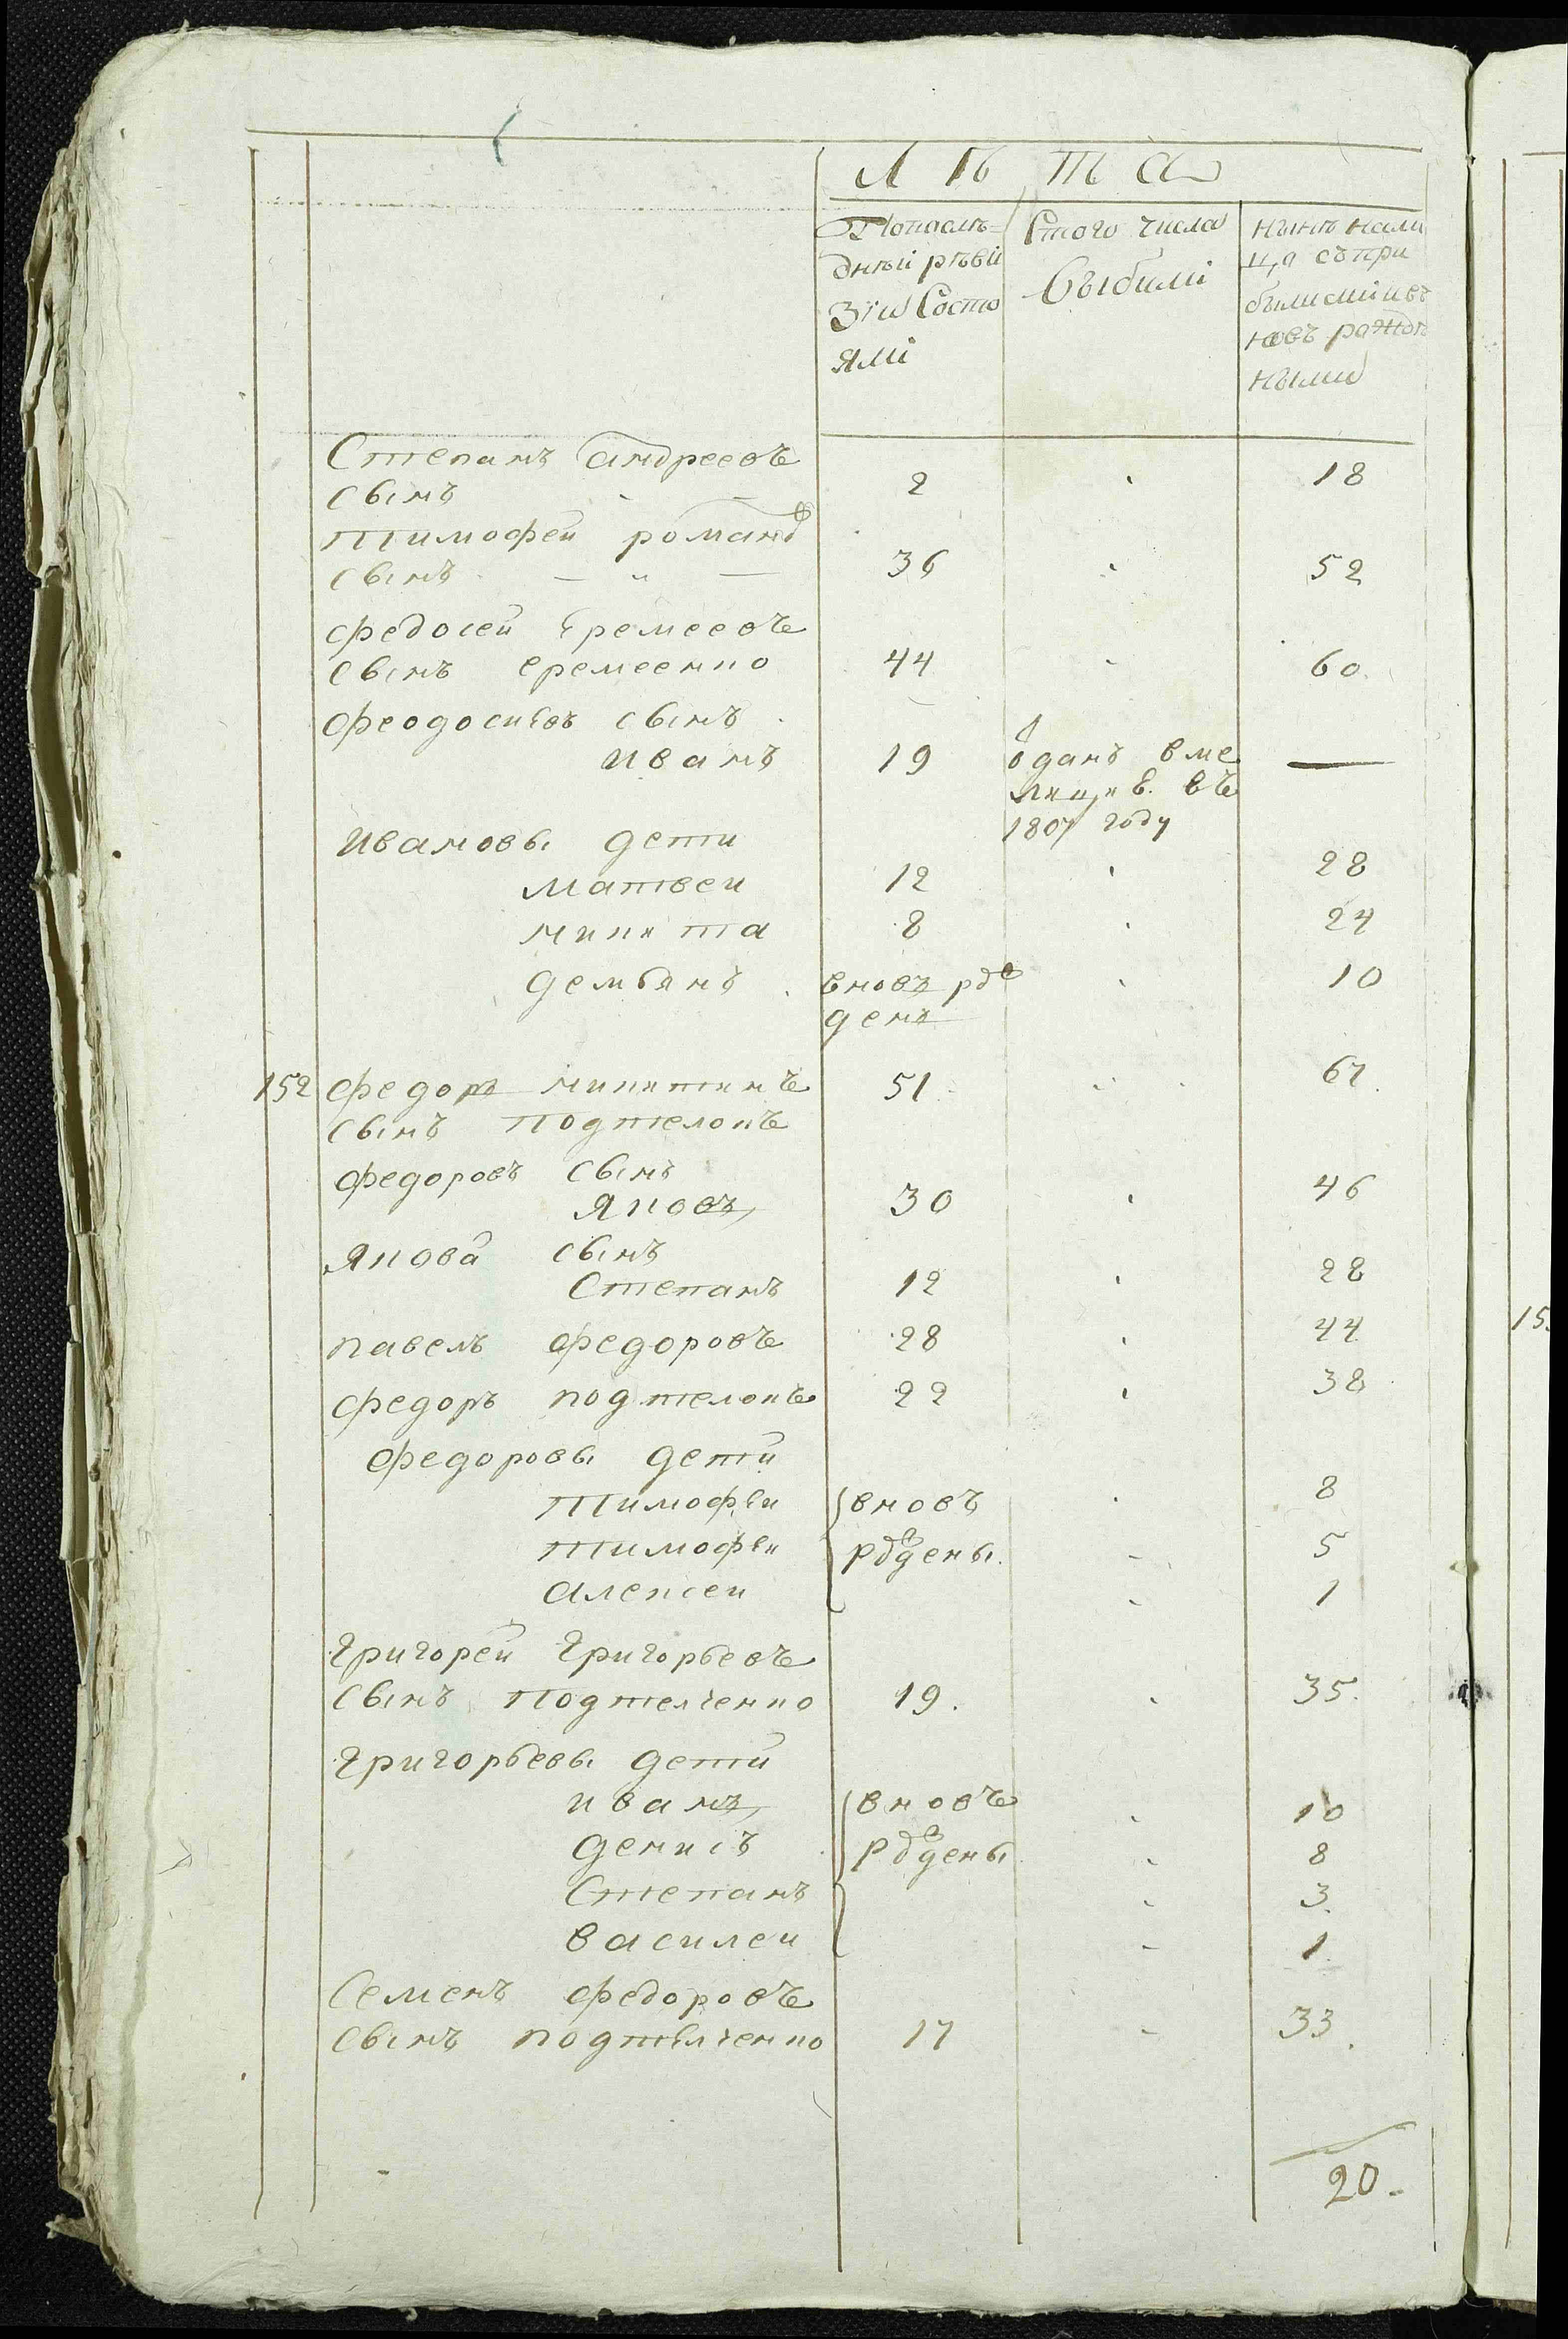 Лѣта
Попослѣ=
днѣй рѣви
зіи Состо
яли
Стого числа
Выбили
нынѣ нали
ца съпри
былыми ивъ
новъ рожде
ными
Степанъ андреевъ
сынъ 2 18
тимофей романов
сынъ — „ — 36 52
федосей Еремеевъ
сынъ еремеенко 44 60.
феодосиевъ сынъ
иванъ 19 —
отданъ вме
лицию. въ
1807 году
ивановы дети
матвеи 12 28
никита 8 24
демьянъ вновъ рож 10
денъ
152 федоръ никитинъ 51 67.
сынъ подтелокъ
федоровъ сынъ
яковъ 30 46
якова сынъ
Степанъ 12 28
павелъ федоровъ 28 44
федоръ подтелокъ 22 38
федоровы дети
тимофеи вновъ 8
тимофеи рождены. 5
алексеи 1
григорей григорьевъ
сынъ подтелченко 19. 35.
григорьевы дети
иванъ вновъ 10
денисъ рождены 8
Степанъ 3.
василеи 1.
Семенъ федоровъ
сынъ подтелченко 17 33.
20.
15